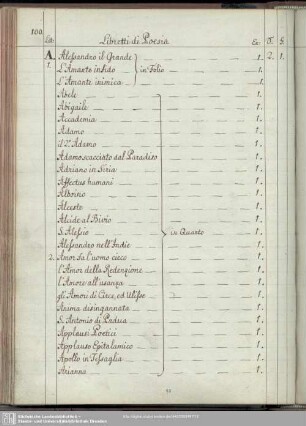 100
Lit: Libretti di Poesia Ex: T. S.
A. Alessandro il Grande 1. 2. 1.
1. L'Amante infido in Folio 1.
L'Amante inimica 1.
Abele 1.
Abigaile 1.
Accademia 1.
Adamo 1.
il 2.º Adamo 1.
Adamo scacciato dal Paradiso 1.
Adriano in Siria 1.
Affectus humani 1.
Alboino 1.
Alceste 1.
Alcide al Bivio 1.
S. Alessio in Quarto 1.
Alessandro nell'Indie 1.
2. Amor fa l'uomo cieco 1.
l'Amor della Redenzione 1.
l'Amore all'usanza 1.
gli Amori di Circe, ed Ulisse 1.
Anima disingannata 1.
S. Antonio di Padua 1.
Applausi Poetici 1.
Applauso Epitalamico 1.
Apollo in Tessaglia 1.
Arianna 1.